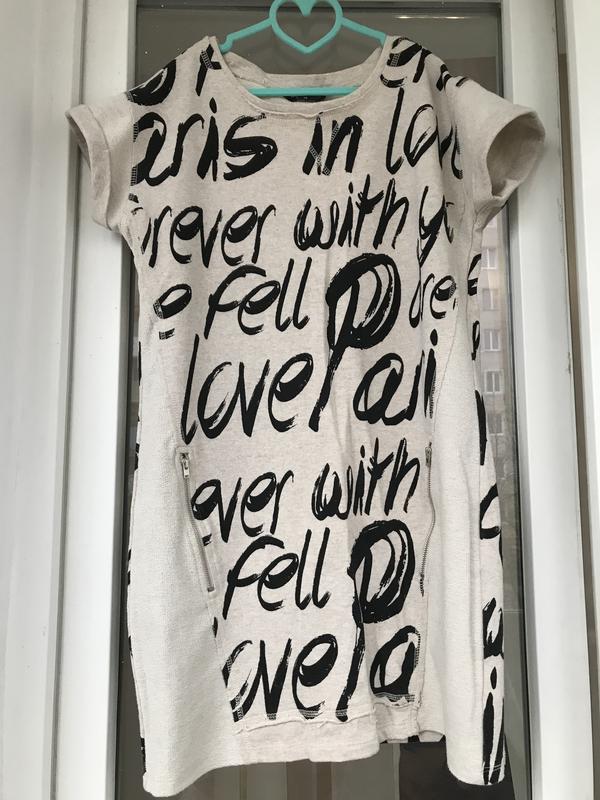 aris in lo
rever with yo
e fell P ore
love Pari
ever with
fell P
ove Pa